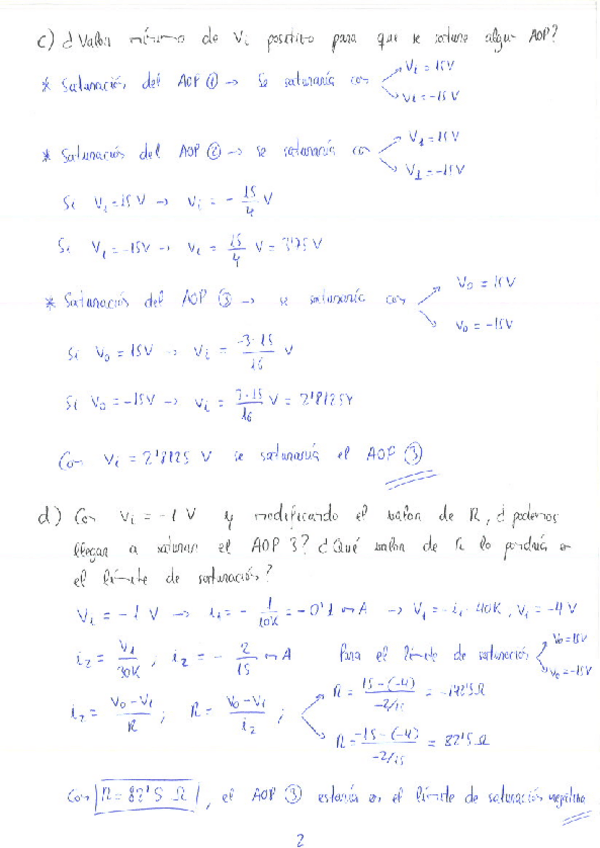 c) ¿Valor mínimo de Vi positivo para que se sature algún AOP?
* Saturación del AOP ① → Se saturaría con Vi = 15V
Vi = -15V
* Saturación del AOP ② → se saturaría con V1 = 15V
V1 = -15V
Si V1 = 15V → Vi = - 15/4 V
Si V1 = -15V → Vi = 15/4 V = 3'75 V
* Saturación del AOP ③ → se saturaría con Vo = 15V
Vo = -15V
Si Vo = 15V → Vi = -3·15/16 V
Si Vo = -15V → Vi = 3·15/16 V = 2'8125V
Con Vi = 2'8125 V se saturaría el AOP ③
d) Con Vi = -1 V y modificando el valor de R, ¿podemos
llegar a saturar el AOP 3? ¿Qué valor de R lo pondría en
el límite de saturación?
Vi = -1 V → i1 = - 1/10K = -0'1 mA → V1 = -i1·40K, V1 = -4V
i2 = V1/30K ; i2 = - 2/15 mA Para el límite de saturación Vo = 15V
Vo = -15V
i2 = Vo-V1/R ; R = Vo-V1/i2 ; R = 15-(-4)/-2/15 = -142'5Ω
R = -15-(-4)/-2/15 = 82'5 Ω
Con R = 82'5 Ω, el AOP ③ estaría en el límite de saturación negativa
2